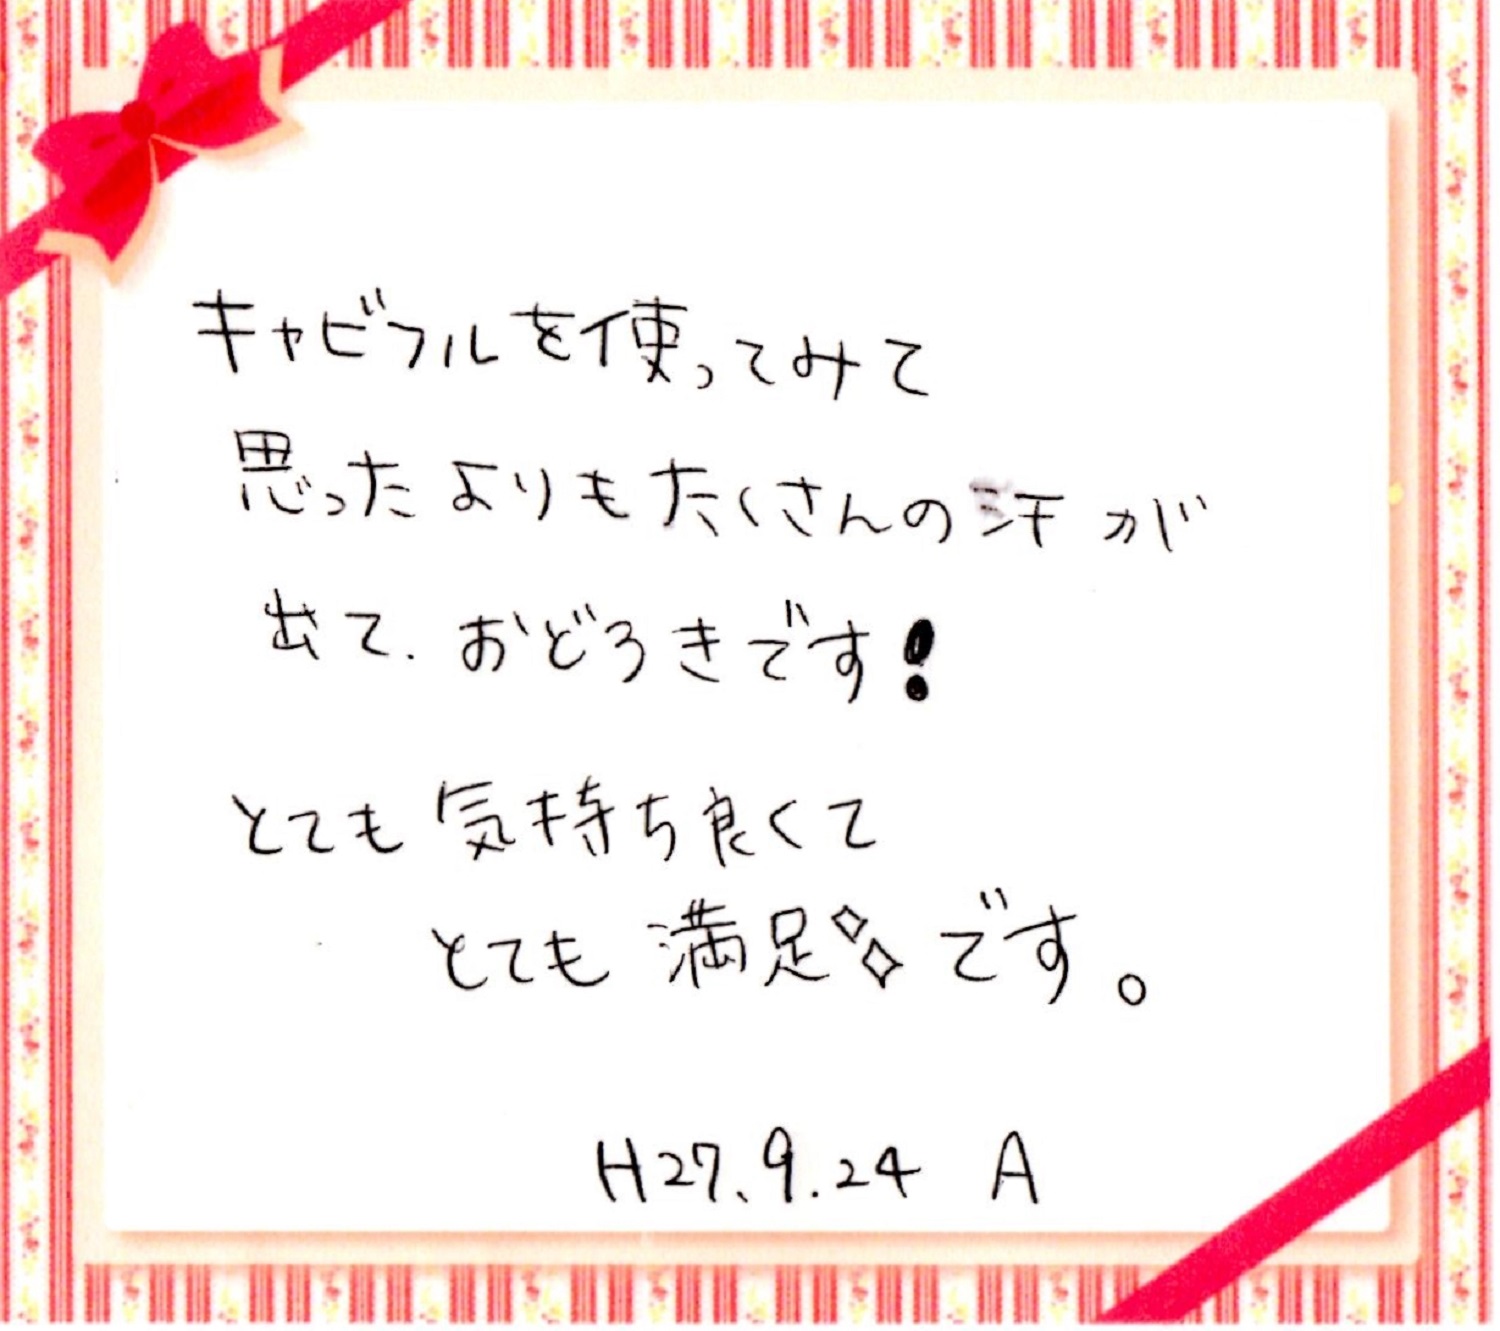 キャビフルを使ってみて
思ったよりもたくさんの汗が
出て、おどろきです!
とても気持ち良くて
とても満足です。
H27.9.24 A